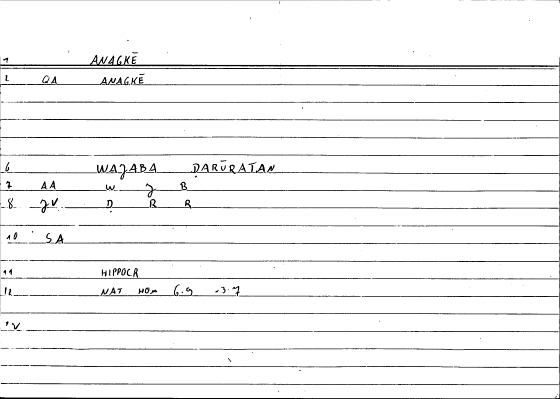 1 ANAGKĒ
2 QA ANAGKĒ
6 WAJABA ḌARŪRATAN
7 AA W J B
8 JV Ḍ R R
10 SA
11 HIPPOCR
12 NAT HOM 6.9 -3.7